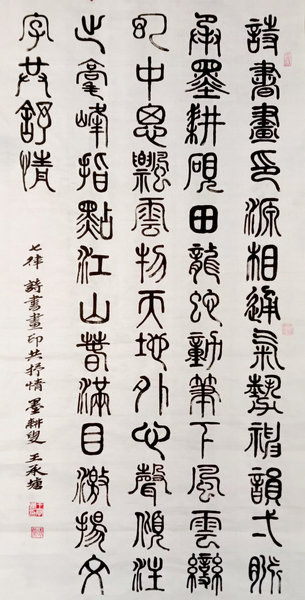 詩書畫印源相通氣勢神韻弌脈
承墨耕硯田龍蛇動筆下風雲變
幻中思飄雲物天地外心聲傾注
之毫峰指點江山春滿目激揚文
字共舒情
七律 詩書畫印共抒情 墨耕叟 王承